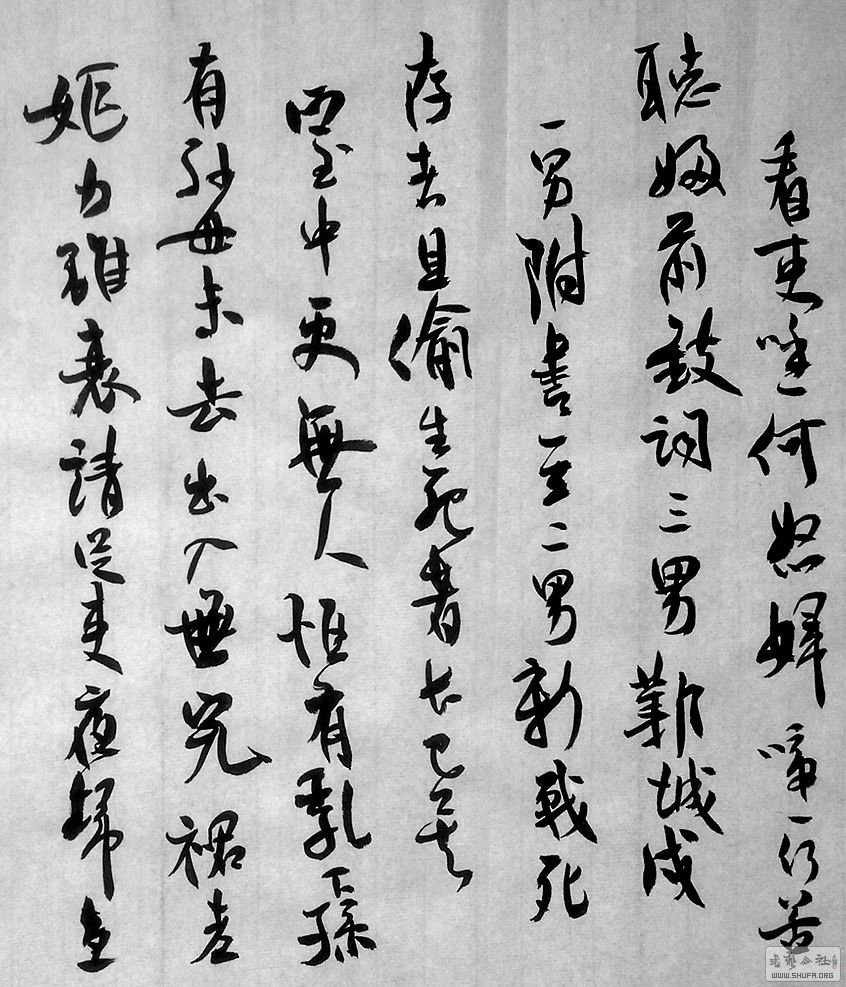 看吏呼一何怒婦啼一何苦
聽婦前致詞三男鄴城戍
一男附書至二男新戰死
存者且偷生死者長已矣
室中更無人惟有乳下孫
有孫母未去出入無完裙老
嫗力雖衰請從吏夜歸急
書藝公社
WWW.SHUFA.ORG